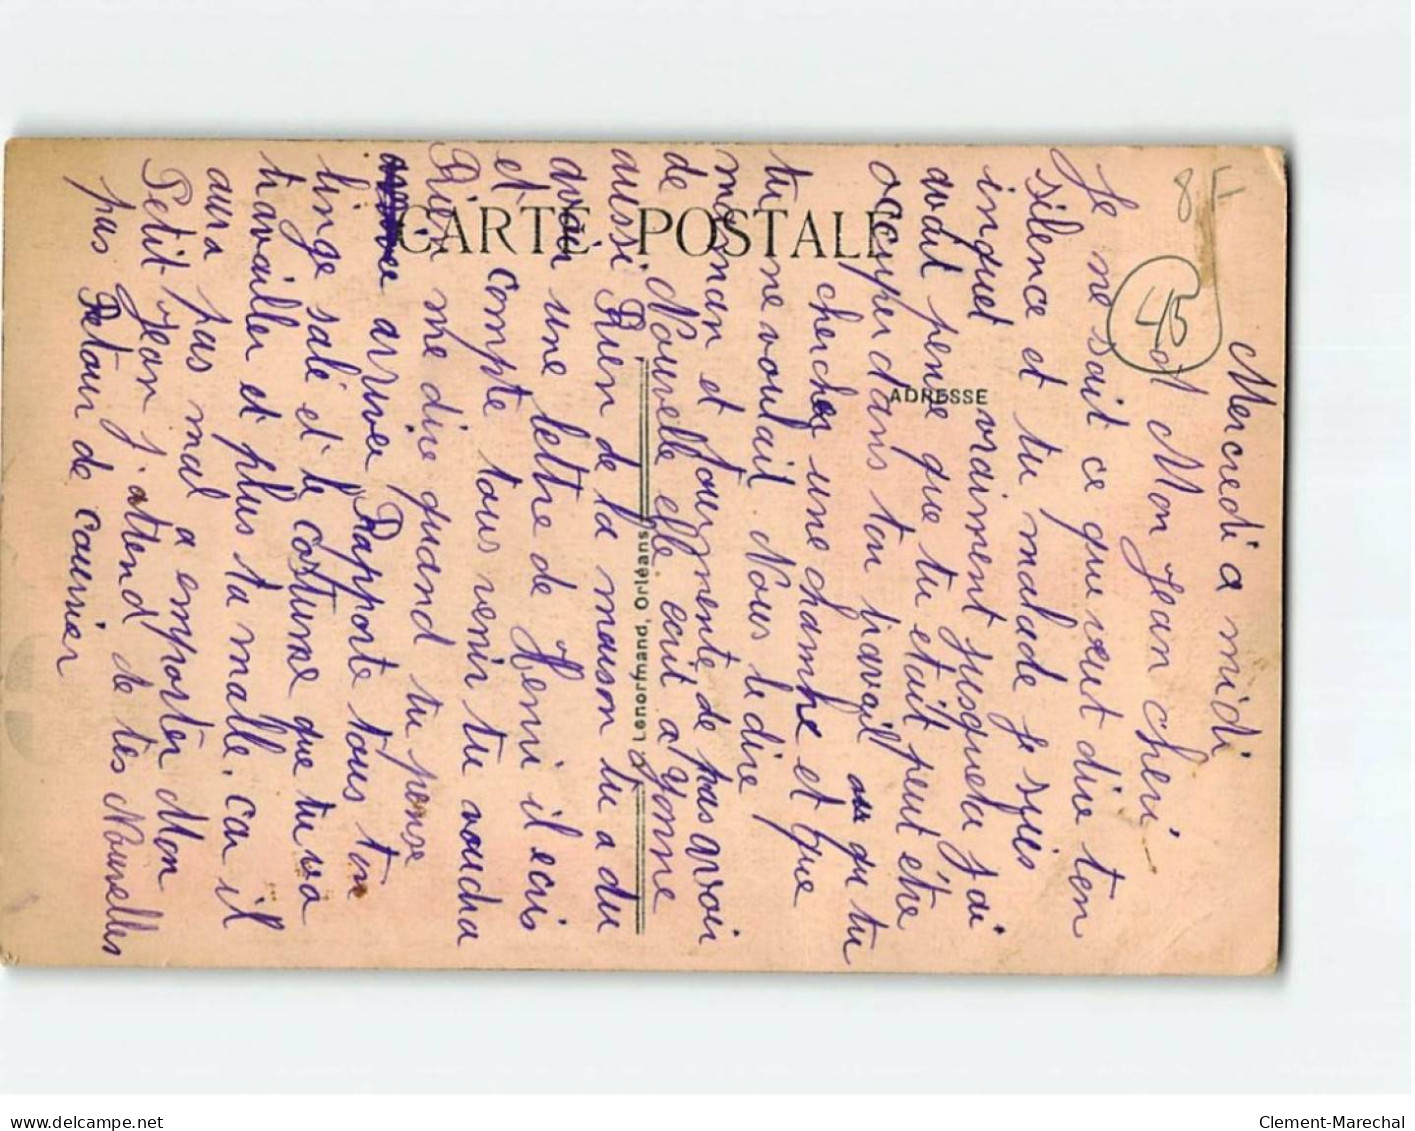 Mercredi a midi
et Mon Jean cheri
Je ne sait ce que veut dire ton
silence et tu malade je suis
inquet vraiment jusqueda j'ai
avait pense que tu etait peut etre
occuper dans ton travail qu tu
chercher une chambre et que
tu ne voulait Nous le dire
maman et tourmente de pas avoir
de Nouvelle elle ecrit a Yvonne
aussi Rien de la maison tu a du
avoir une lettre de Henri il ecris
et compte tous venir tu voudra
Rien me dire quand tu pense
arriver Rapporte tous ton
linge sale et le costume que tu va
travailler et plus ta malle. car il
aura pas mal a emporter Mon
Petit Jean j. attend de tes Nouvelles
pas Retour de courrier
CARTE POSTALE
ADRESSE
Lenormand, Orléans
8F
45
www.delcampe.net
Clement-Marechal